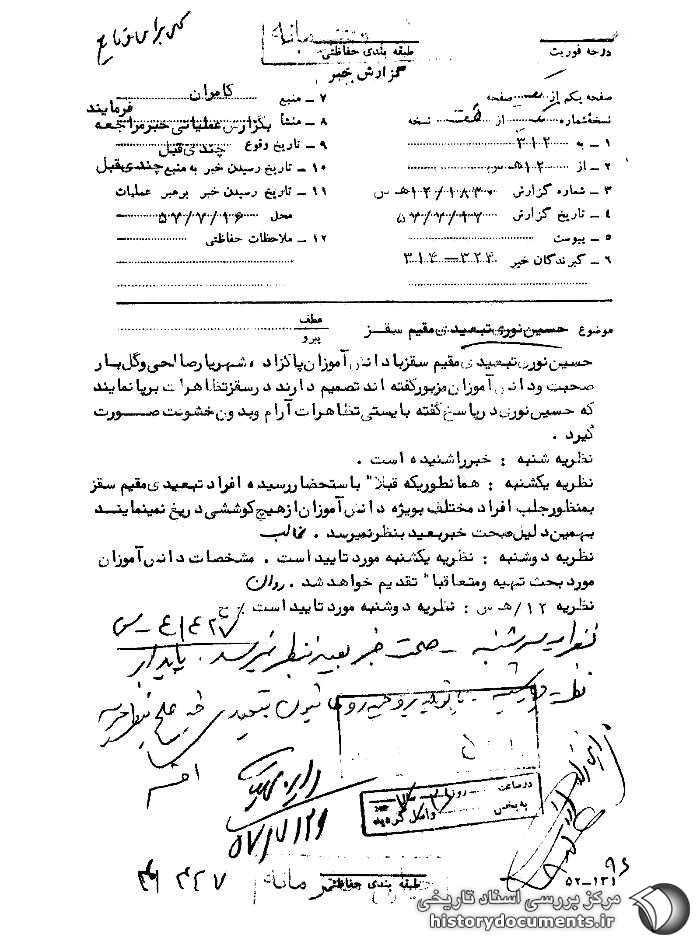 محرمانه
درجه فوریت
طبقه بندی حفاظتی
گزارش خبر
صفحه یکم از یک صفحه
نسخه شماره یک از هفت نسخه
۱ ـ به ۳۱۲
۲ ـ از ۱۲ هـ س
۳ ـ شماره گزارش ۱۲/۱۸۳۰ هـ س
۴ ـ تاریخ گزارش ۵۷/۷/۱۷
۵ ـ پیوست
۶ ـ گیرندگان خبر ۳۲۴ـ۳۱۴
۷ ـ منبع کامران
۸ ـ منشأ بگزارش عملیاتی خبر مراجعه فرمایند
۹ ـ تاریخ وقوع چندی قبل
۱۰ ـ تاریخ رسیدن خبر به منبع چندی قبل
۱۱ ـ تاریخ رسیدن خبر برهبر عملیات
محل ۵۷/۷/۱۶
۱۲ ـ ملاحظات حفاظتی
موضوع حسین نوری تبعیدی مقیم سقز
عطف
پیرو
حسین نوری تبعیدی مقیم سقز با دانش آموزان پاکزاد ، شهریار صالحی و گل یار
صحبت و دانش آموزان مزبور گفته اند تصمیم دارند در سقز تظاهرات برپا نمایند
که حسین نوری در پاسخ گفته بایستی تظاهرات آرام و بدون خشونت صورت
گیرد .
نظریه شنبه : خبر را شنیده است .
نظریه یکشنبه : همانطوریکه قبلاً" باستحضار رسیده افراد تبعیدی مقیم سقز
بمنظور جلب افراد مختلف بویژه دانش آموزان از هیچ کوششی دریغ نمینمایند
بهمین دلیل صحت خبر بعید بنظر نمیرسد .
نظریه دوشنبه : نظریه یکشنبه مورد تایید است . مشخصات دانش آموزان
مورد بحث تهیه و متعاقبا" تقدیم خواهد شد . روان
نظریه ۱۲/هـ س : نظریه دوشنبه مورد تایید است .
نظریه سه شنبه ـ صحت خبر بعید بنظر نمیرسد . پایدار
در ساعت روز
به بخش واصل گردید
۵۷/۷/۲۹
طبقه بندی حفاظتی
محرمانه
مرکز بررسی اسناد تاریخی
historydocuments.ir